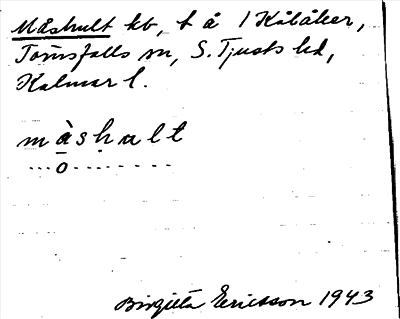 Måshult kb, t å 1 Kålåker,
Törnsfalls sn, S. Tjusts hd,
Kalmar l.
måshult
o
Birgitta Ericsson 1943